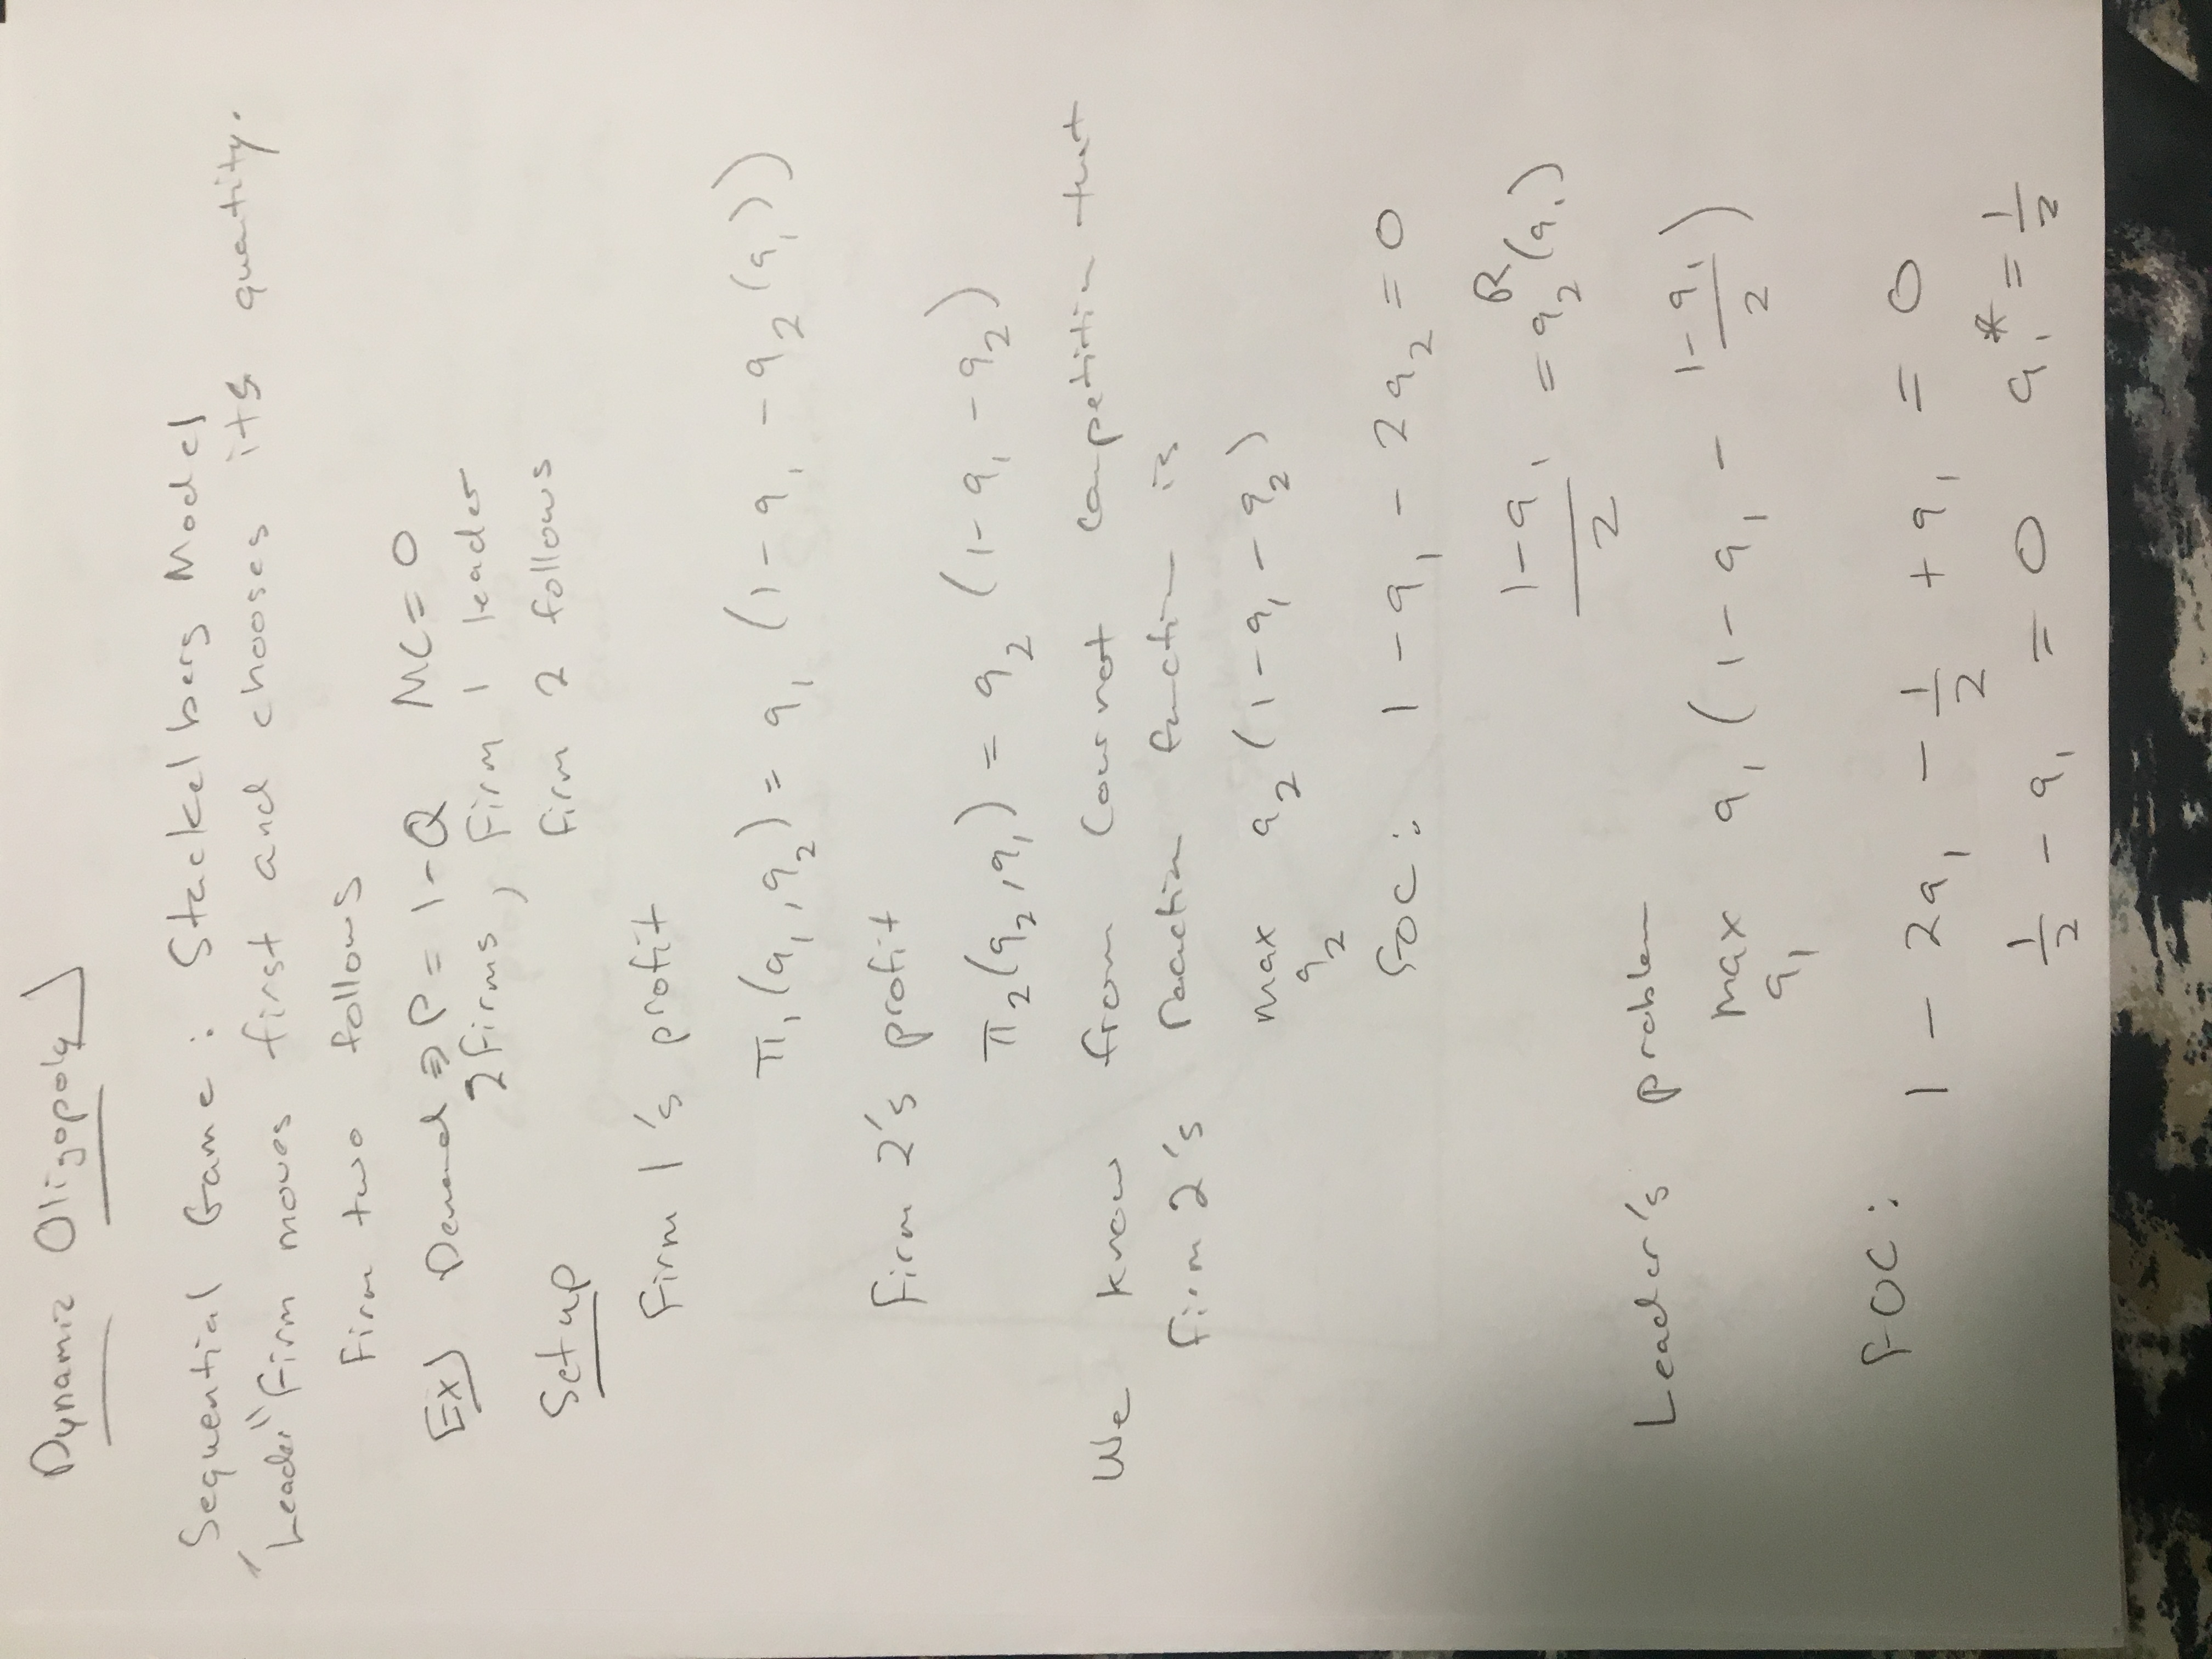 Dynamic Oligopoly
Sequential Game: Stackelberg Model
"Leader" Firm moves first and chooses its quantity.
Firm two follows
Ex) Demand ⇒ P = 1-Q MC = 0
2 firms, Firm 1 leader
Setup firm 2 follows
Firm 1's profit
π₁(q₁, q₂) = q₁ (1 - q₁ - q₂(q₁))
Firm 2's profit
π₂(q₂, q₁) = q₂ (1 - q₁ - q₂)
We know from Cournot competition that
firm 2's reaction function is
max q₂ (1 - q₁ - q₂)
q₂
FOC: 1 - q₁ - 2q₂ = 0
(1 - q₁)/2 = q₂ᴿ(q₁)
Leader's problem
max q₁ (1 - q₁ - (1 - q₁)/2)
q₁
FOC:
1 - 2q₁ - 1/2 + q₁ = 0
1/2 - q₁ = 0 q₁* = 1/2